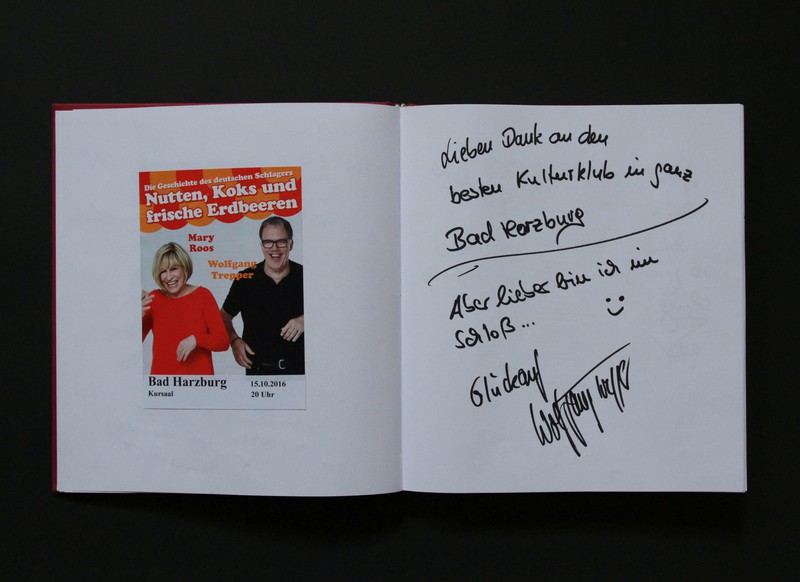 Die Geschichte des deutschen Schlagers
Nutten, Koks und
frische Erdbeeren
Mary
Roos
Wolfgang
Trepper
Bad Harzburg 15.10.2016
Kursaal 20 Uhr
Lieben Dank an den
besten Kulturklub in ganz
Bad Harzburg
Aber lieber bin ich im
Schloß...
Glückauf
Wolfgang Trepper